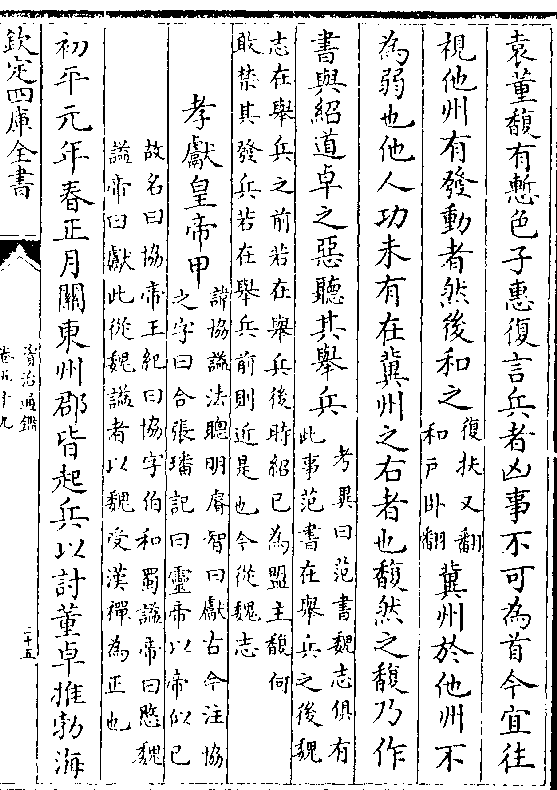 袁董馥有慙色子惠復言兵者凶事不可為首今宜往
視他州有發動者然後和之復扶又翻
和戸卧翻冀州於他州不
為弱也他人功未有在冀州之右者也馥然之馥乃作
書與紹道卓之惡聽其舉兵考異曰范書魏志俱有
此事范書在舉兵之後魏
志在舉兵之前若在舉兵後時紹已為盟主馥何
敢禁其發兵若在舉兵前則近是也今從魏志
孝獻皇帝甲諱協諡法聰明睿智曰獻古今注協
之字曰合張璠記曰靈帝以帝似已
故名曰協帝王紀曰協字伯和蜀諡帝曰愍魏
諡帝曰獻此從魏諡者以魏受漢禪為正也
初平元年春正月關東州郡皆起兵以討董卓推勃海
欽定四庫全書
資治通鑑
卷五十九
二十五